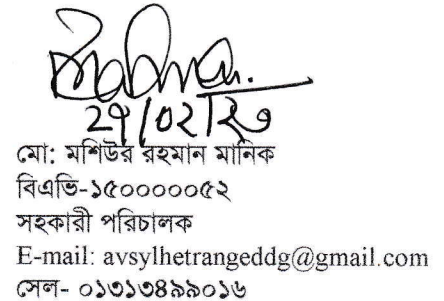 ২৭/০২/২৩
মো: মশিউর রহমান মানিক
বিএভি-১৫০০০০০৫২
সহকারী পরিচালক
E-mail: avsylhetrangeddg@gmail.com
সেল- ০১৩১৩৪৯৯০১৬